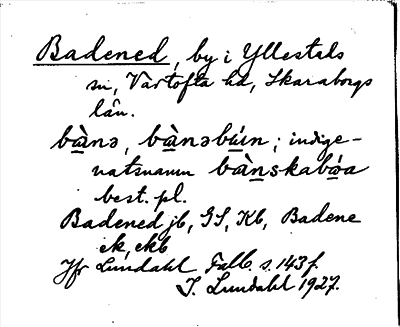 Badened, by i Yllestads
sn, Vartofta hd, Skaraborgs
län.
bànə, bànəbýin; indige-
natsnamn bànskabóa
best. pl.
Badened jb, GS, Kb, Badene
ek, ekb
Jfr Lundahl Falb. s. 143f.
I. Lundahl 1927.